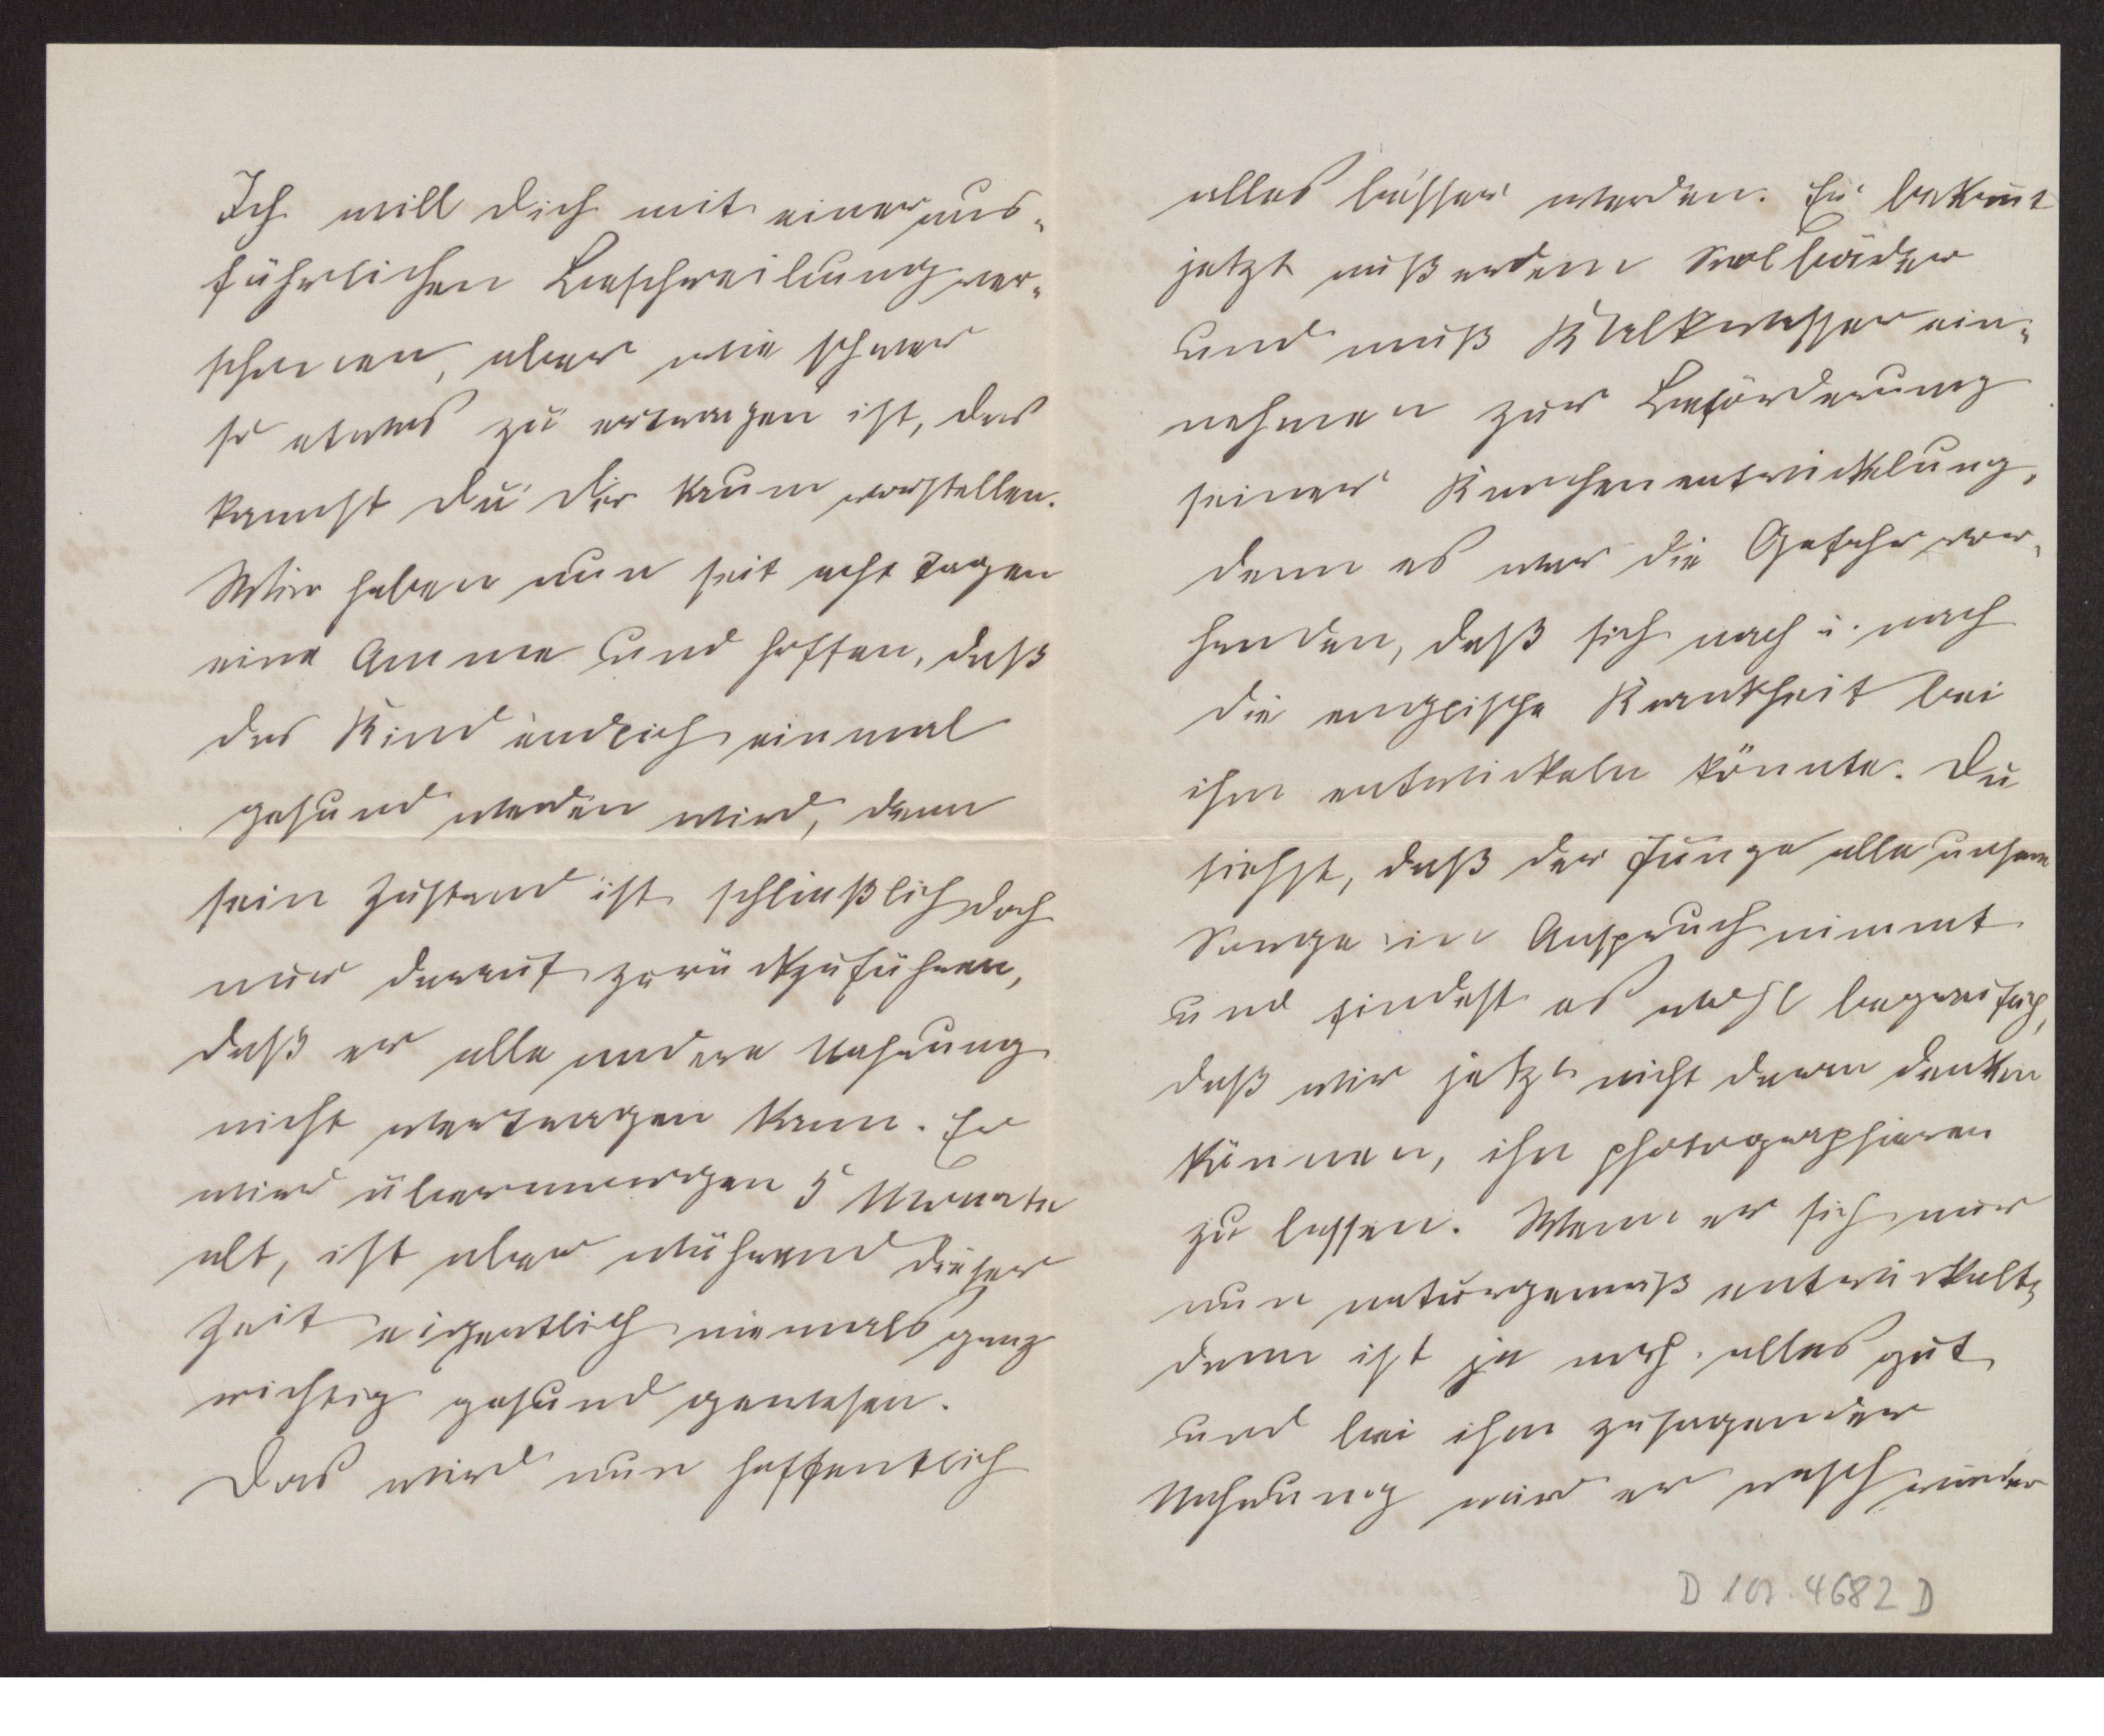 Ich will Dich mit einer aus-
führlichen Beschreibung ver-
schonen, aber wie schwer
so etwas zu ertragen ist, das
kannst Du Dir kaum vorstellen.
Wir haben nun seit acht Tagen
eine Amme und hoffen, daß
das Kind endlich einmal
gesund werden wird, denn
sein Zustand ist schließlich doch
nur darauf zurückzuführen,
daß er alle andere Nahrung
nicht vertragen kann. Er
wird übermorgen 5 Monate
alt, ist aber während dieser
Zeit eigentlich niemals ganz
richtig gesund gewesen.
Das wird nun hoffentlich
alles besser werden. Er bekommt
jetzt außerdem Soolbäder
und muß Kalkwasser ein-
nehmen zur Beförderung
seiner Knochenentwickelung,
denn es war die Gefahr vor-
handen, daß sich nach u. nach
die englische Krankheit bei
ihm entwickeln könnte. Du
siehst, daß der Junge alle unsere
Sorge in Anspruch nimmt
und findest es wohl begreiflich,
daß wir jetzt nicht daran denken
können, ihn photographieren
zu lassen. Wenn er sich nur
nun naturgemäß entwickelt,
dann ist ja noch alles gut
und bei ihm zusagender
Nahrung wird er rasch wieder
D 107.4682 D